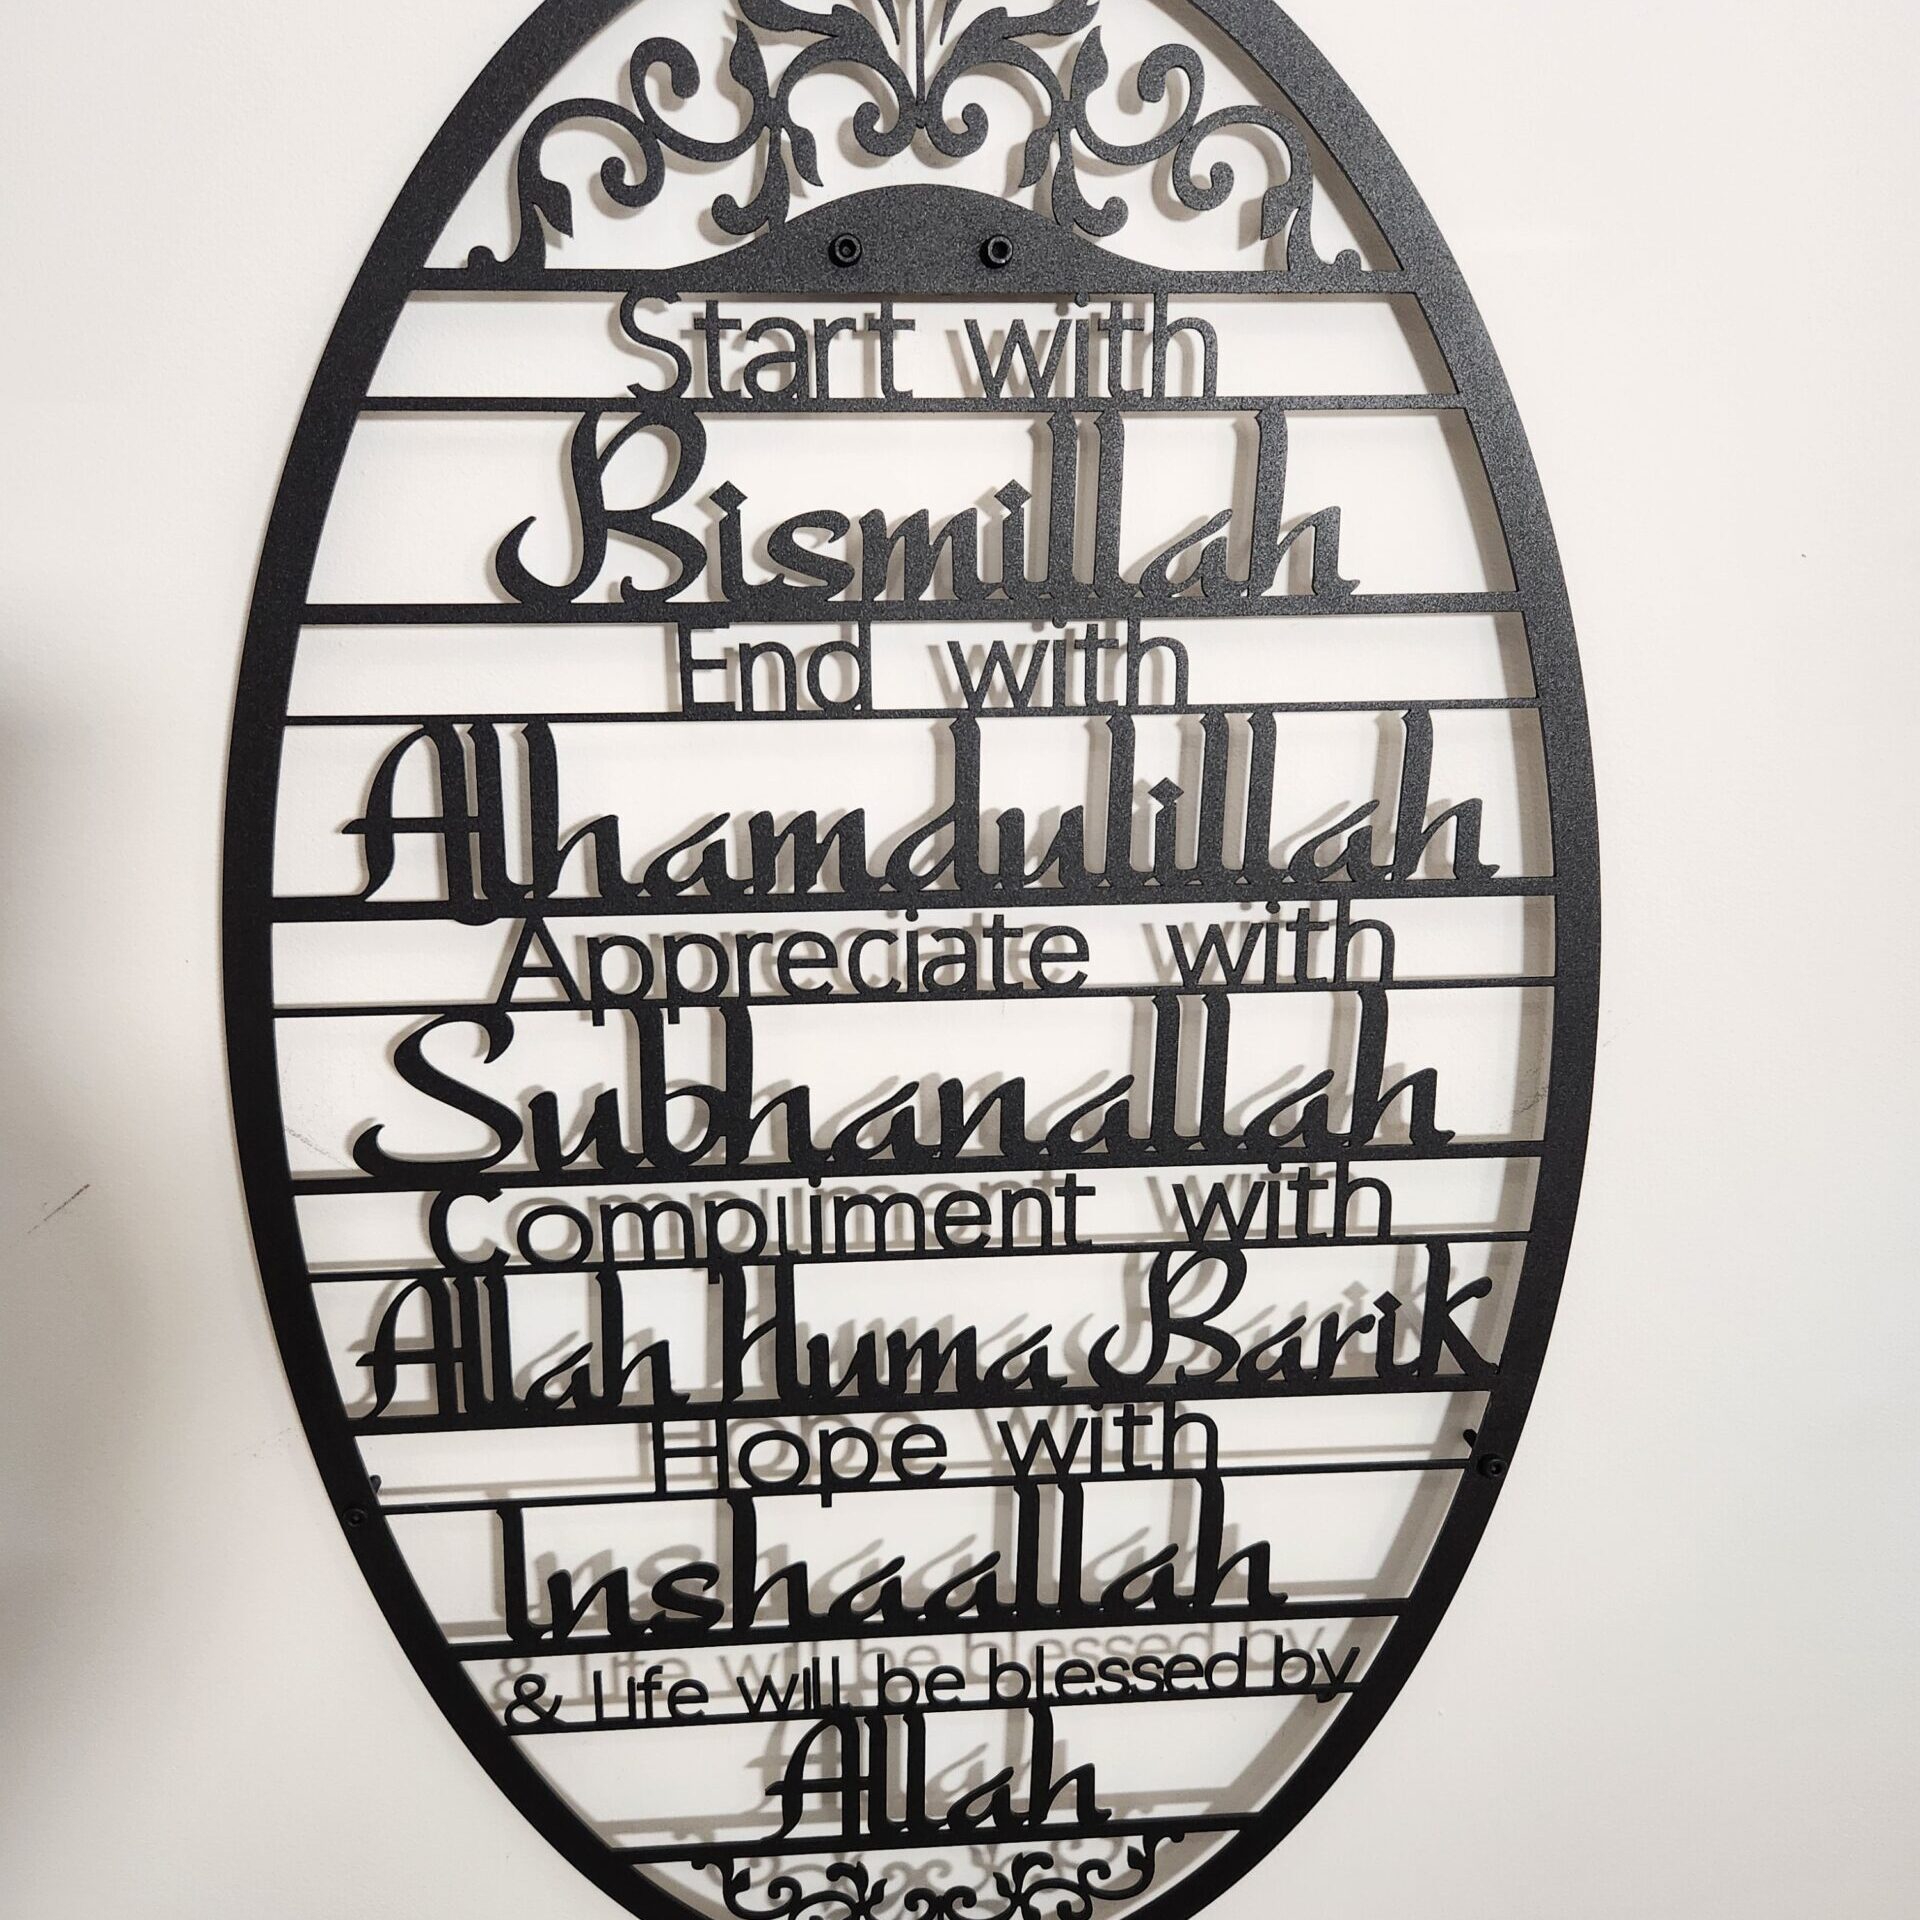 Start with
Bismillah
End with
Alhamdulillah
Appreciate with
Subhanallah
Compliment with
Allah Huma Barik
Hope with
Inshaallah
& Life will be blessed by
Allah